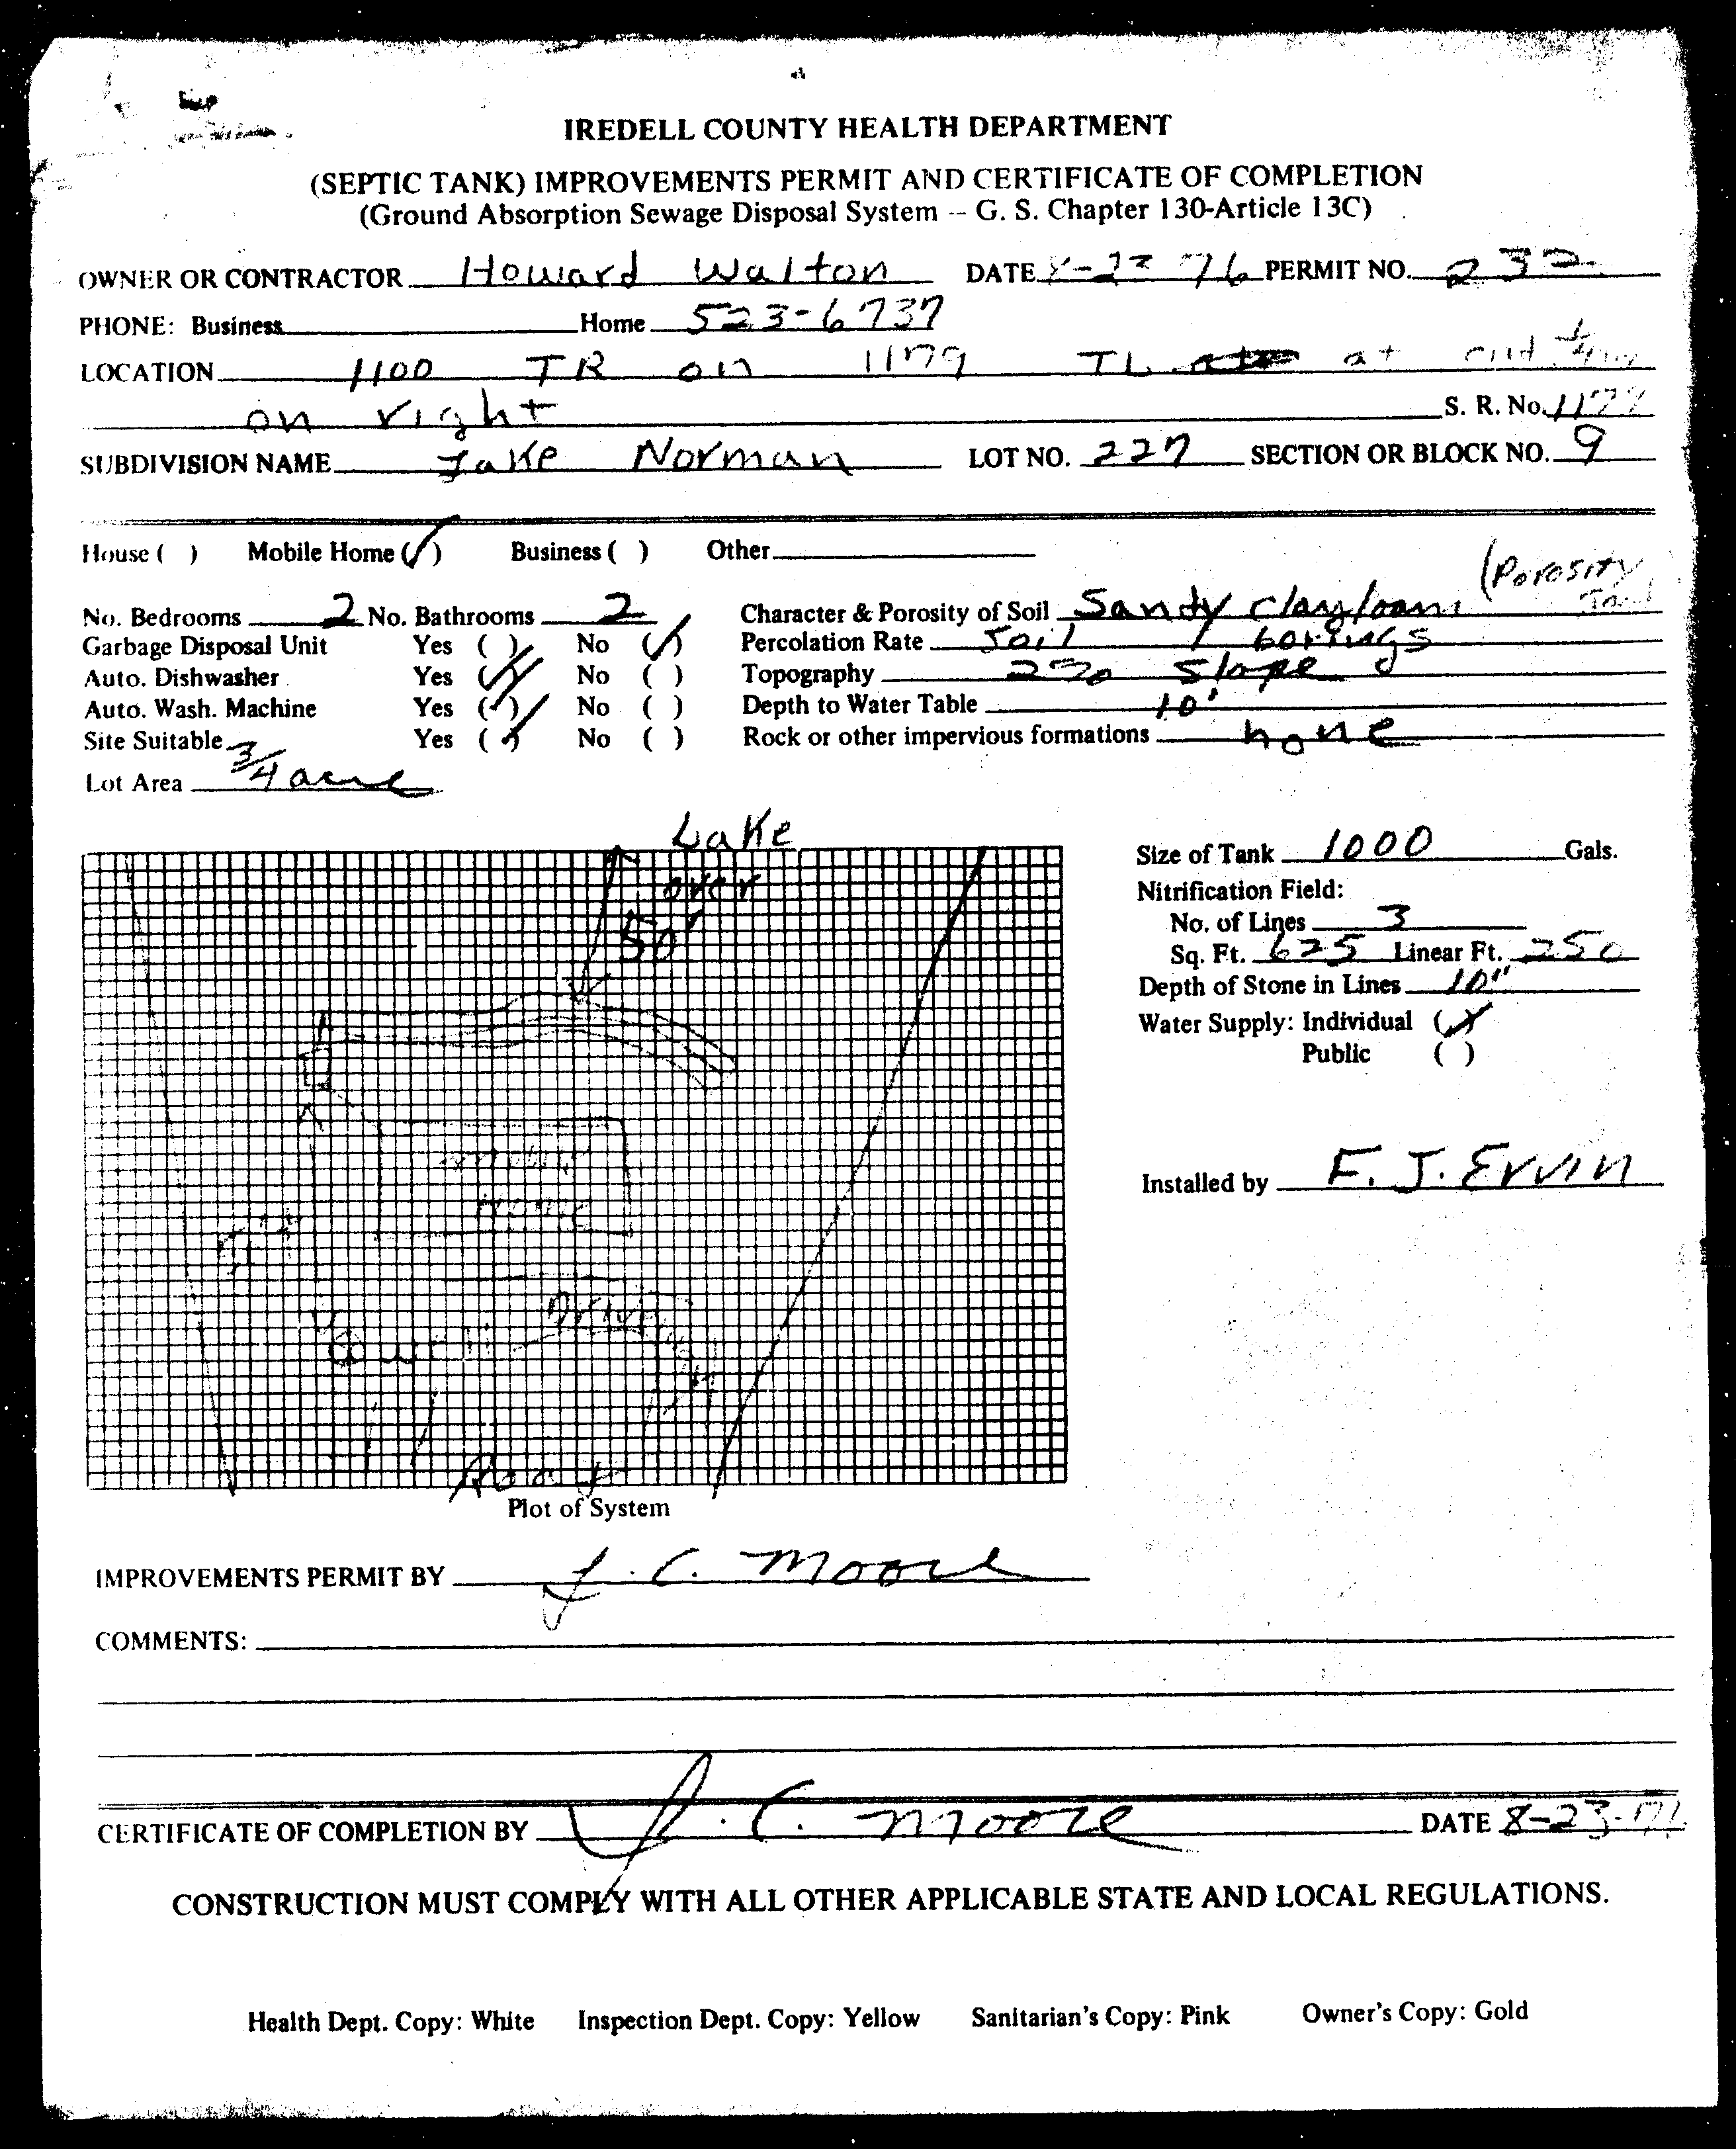 IREDELL COUNTY HEALTH DEPARTMENT
(SEPTIC TANK) IMPROVEMENTS PERMIT AND CERTIFICATE OF COMPLETION
(Ground Absorption Sewage Disposal System -- G. S. Chapter 130-Article 13C)
OWNER OR CONTRACTOR Howard Walton DATE 8-23-76 PERMIT NO. 232
PHONE: Business Home 523-6737
LOCATION 1100 TR on 1179 TL at
on right S. R. No. 1177
SUBDIVISION NAME Lake Norman LOT NO. 227 SECTION OR BLOCK NO. 9
House ( ) Mobile Home (✓) Business ( ) Other
(Porosity
No. Bedrooms 2 No. Bathrooms 2 Character & Porosity of Soil Sandy clay loam
Garbage Disposal Unit Yes ( ) No (✓) Percolation Rate Soil borings
Auto. Dishwasher Yes (✓) No ( ) Topography 2% Slope
Auto. Wash. Machine Yes (✓) No ( ) Depth to Water Table 10'
Site Suitable Yes (✓) No ( ) Rock or other impervious formations none
Lot Area 3/4 acre
Lake
over
50'
mobile
home
Drive
well
Road
Plot of System
Size of Tank 1000 Gals.
Nitrification Field:
No. of Lines 3
Sq. Ft. 625 Linear Ft. 250
Depth of Stone in Lines 10"
Water Supply: Individual (✓)
Public ( )
Installed by F. J. Ervin
IMPROVEMENTS PERMIT BY J. C. Moore
COMMENTS:
CERTIFICATE OF COMPLETION BY J. C. Moore DATE 8-23-76
CONSTRUCTION MUST COMPLY WITH ALL OTHER APPLICABLE STATE AND LOCAL REGULATIONS.
Health Dept. Copy: White Inspection Dept. Copy: Yellow Sanitarian's Copy: Pink Owner's Copy: Gold